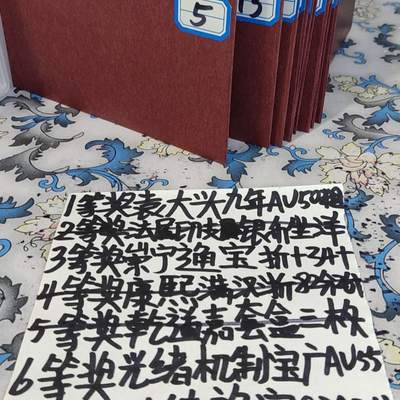 5
15
1等奖袁大头九年AU50
2等奖法属印支银币坐洋
3等奖崇宁通宝折十3A+
4等奖康熙满汉浙82分
5等奖乾隆嘉套盒一枚
6等奖光绪机制宝广AU55